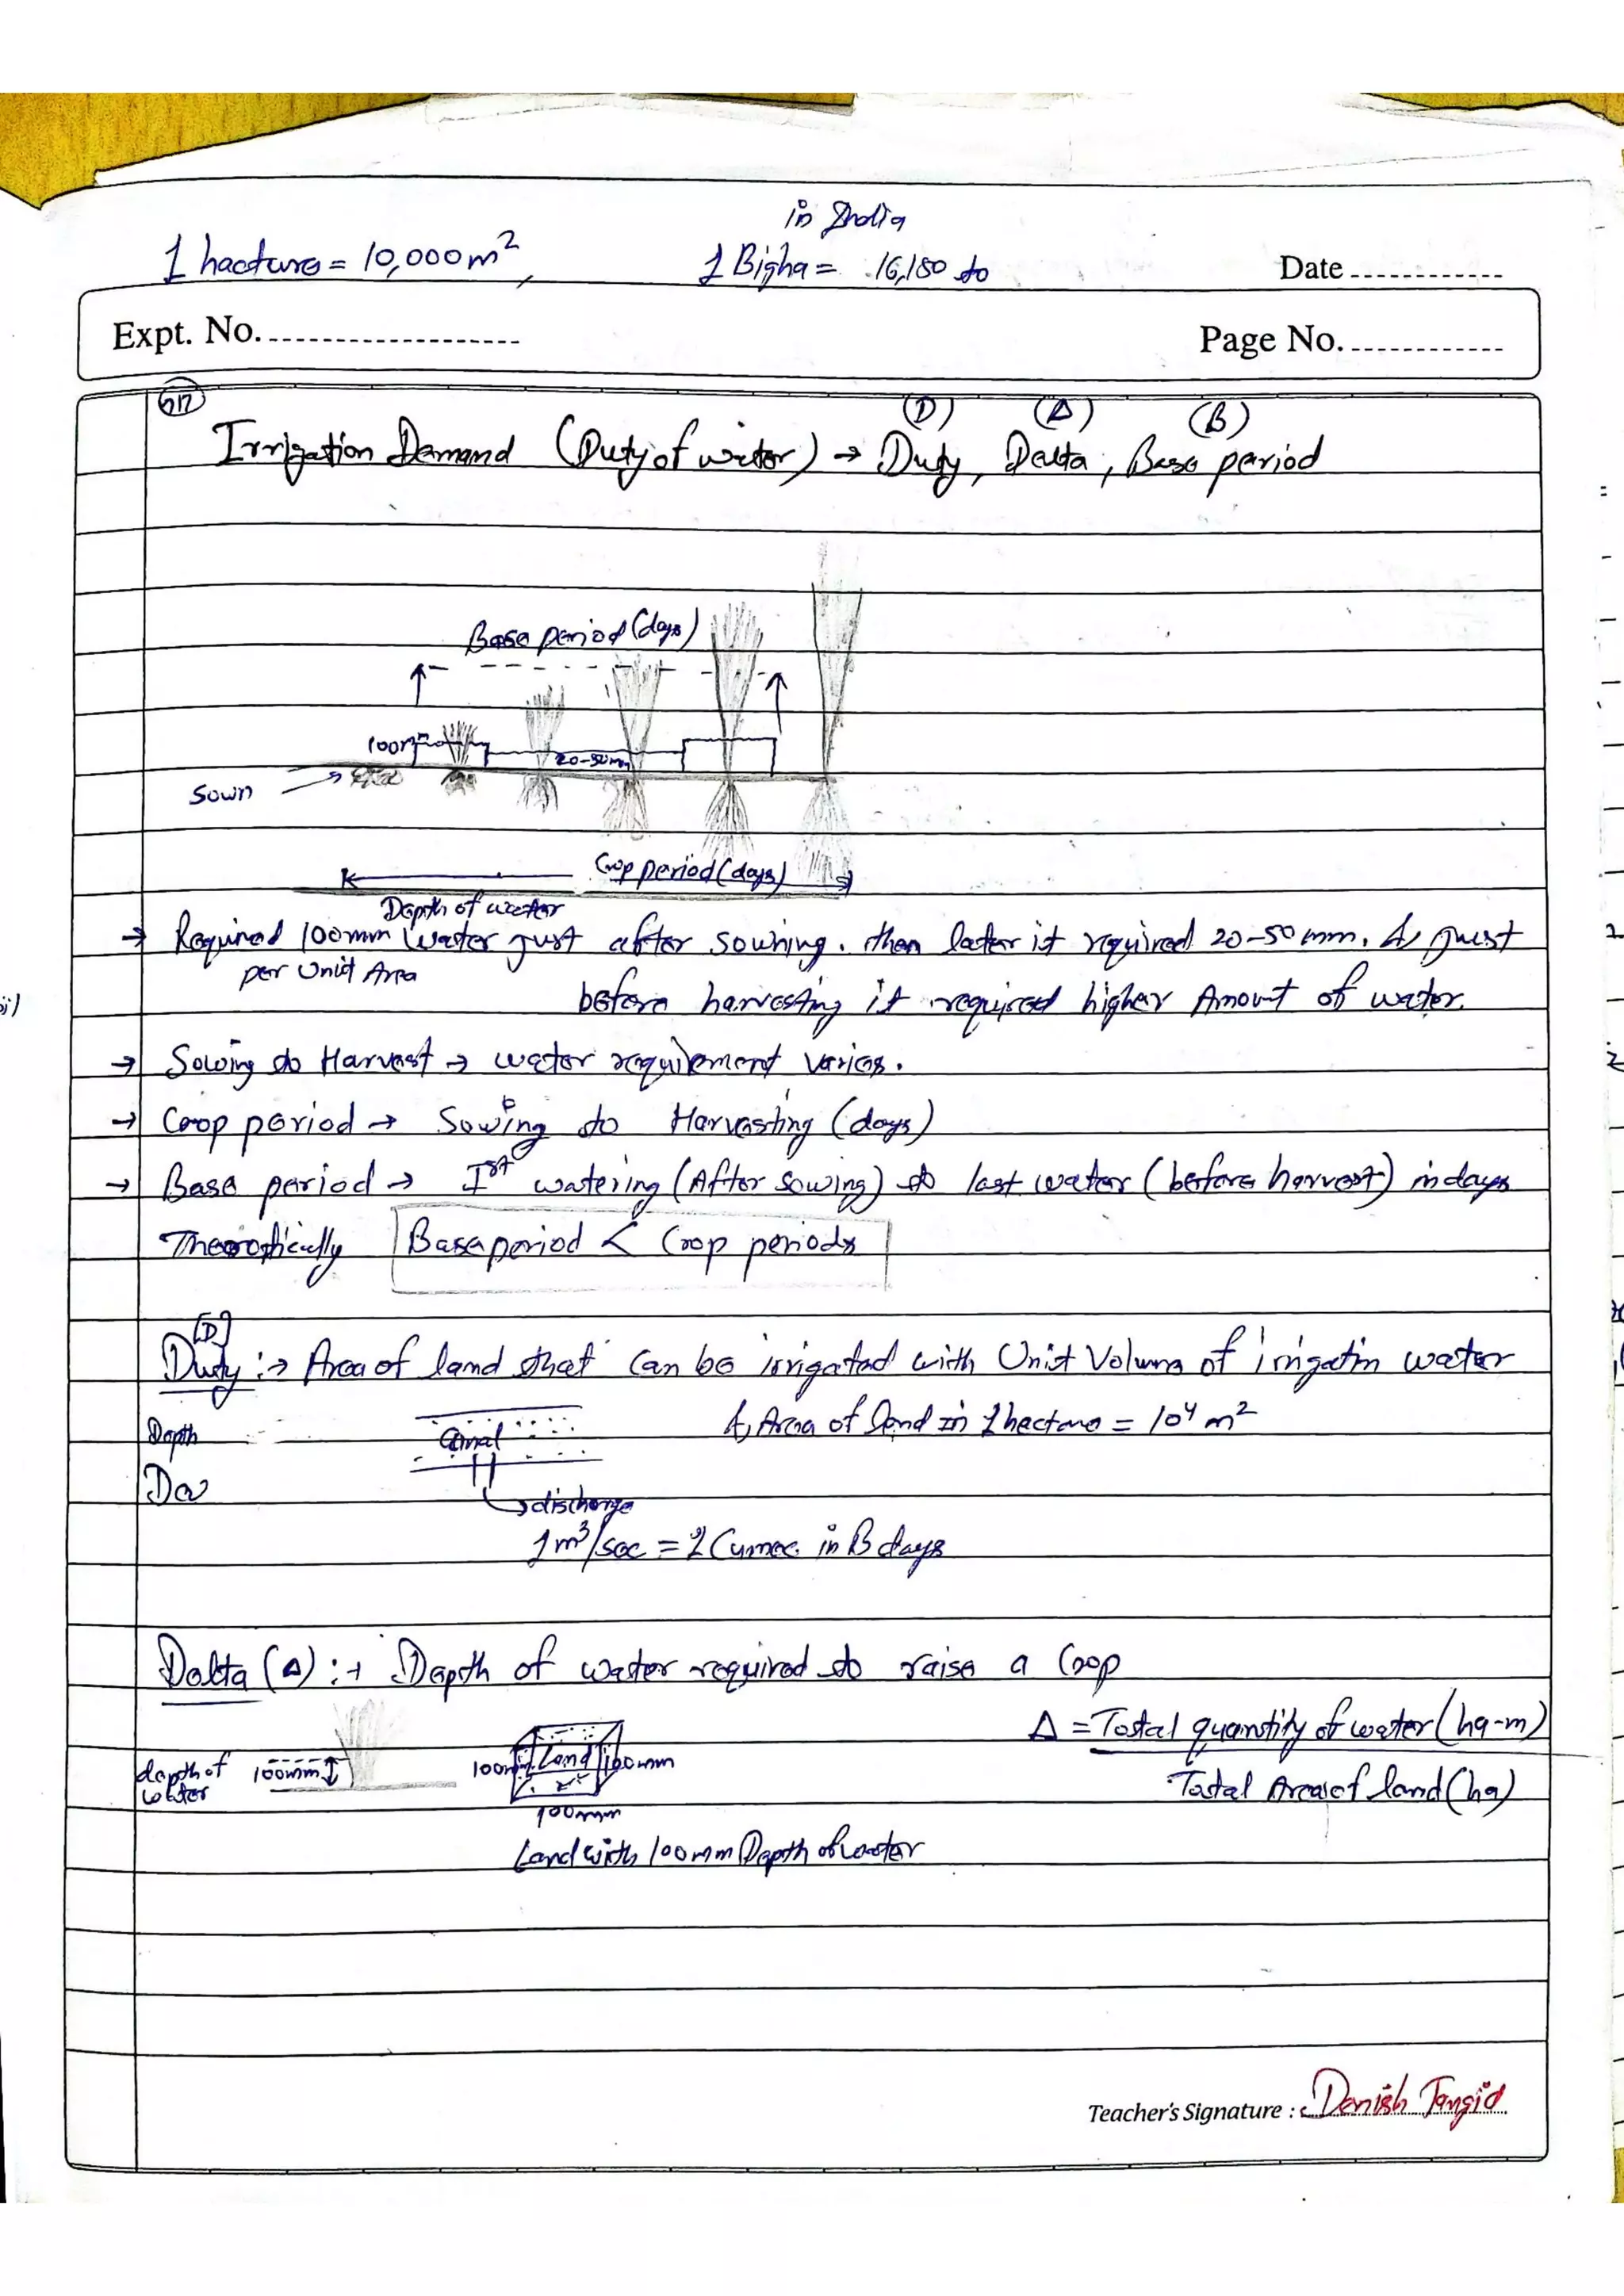 in India
1 hacture = 10,000 m², 1 Bigha = 16,180 to
Date
Expt. No.
Page No.
(D) (Δ) (B)
Irrigation Demand (Duty of water) → Duty, Delta, Base period
Base period (days)
100mm
20-50mm
Sown
Crop period (days)
Depth of water
→ Required 100mm water just after sowning. then later it required 20-50 mm. & just
per Unit Area
before harvesting it required higher Amount of water.
→ Sowing to Harvest → water requirement varies.
→ Crop period → Sowing to Harvesting (days)
→ Base period → Ist watering (After sowing) to last water (before harvest) in days
Theoretically Base period < Crop periods
[D]
Duty :→ Area of land that can be irrigated with Unit Volume of irrigatin water
Depth
Canal
↳ Area of land in 1 hectare = 10⁴ m²
discharge
1 m³/sec = 1 Cumec in B days
Delta (Δ) :→ Depth of water required to raise a Crop
Δ = Total quantity of water (ha-m)
Total Area of land (ha)
depth of water
100mm
100mm
Land
100mm
100mm
Land with 100mm Depth of water
Teacher's Signature : Danish Jangid